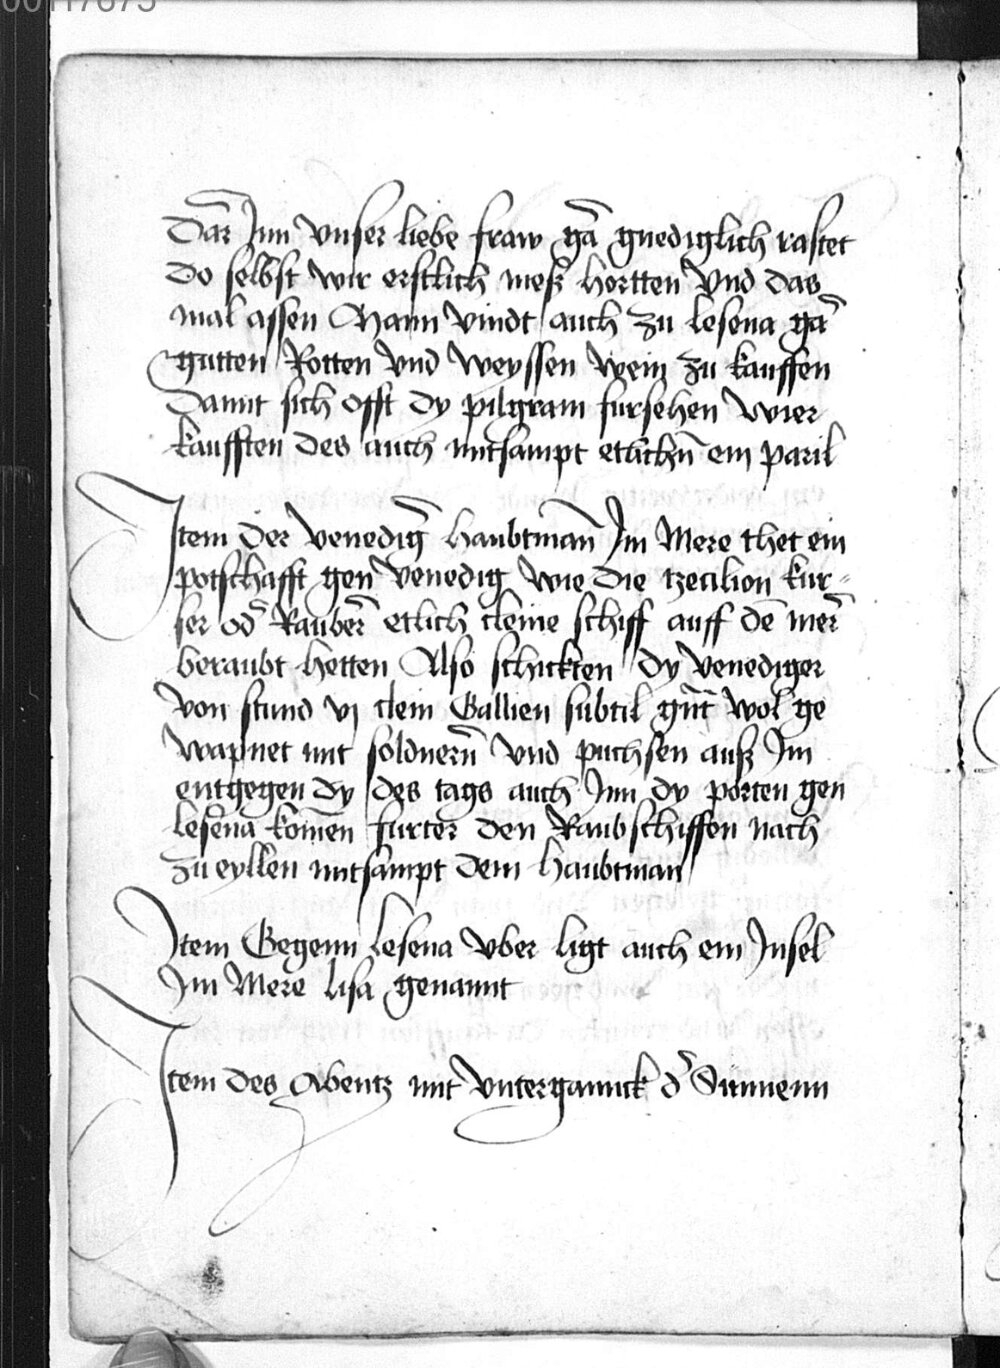 Dar Inn vnser liebe fraw gar gnediglich rastet
do selbst wir erstlich meß hortten vnd das
mal assen Mann vindt auch zu lesena gar
gutten Rotten vnd weyssen wein zu kauffen
Damit sich offt dy pilgram fursehen wier
kaufften des auch mitsampt etlichn̄ ein paril
Item der venediḡ haubtmān Im Mere thet ein
potschafft gen venedig wie die tzecilion kur-
ser od̄ Raubēr etlich cleine schiff auff dē mer
beraubt hetten Also schickten dy venediger
von stund vj clein Gallien subtil gūt wol ge
wapnet mit soldnern̄ vnd puchsen auß Im
entgegen dy des tags auch Inn dy porten gen
lesena komēn furter den Raubschiffen nach
zu eyllen mitsampt dem haubtman
Item Gegenn lesena vber ligt auch ein Insel
Im Mere lisa genannt
Item des Abentz mit vntergannck d̄ Sunnenn